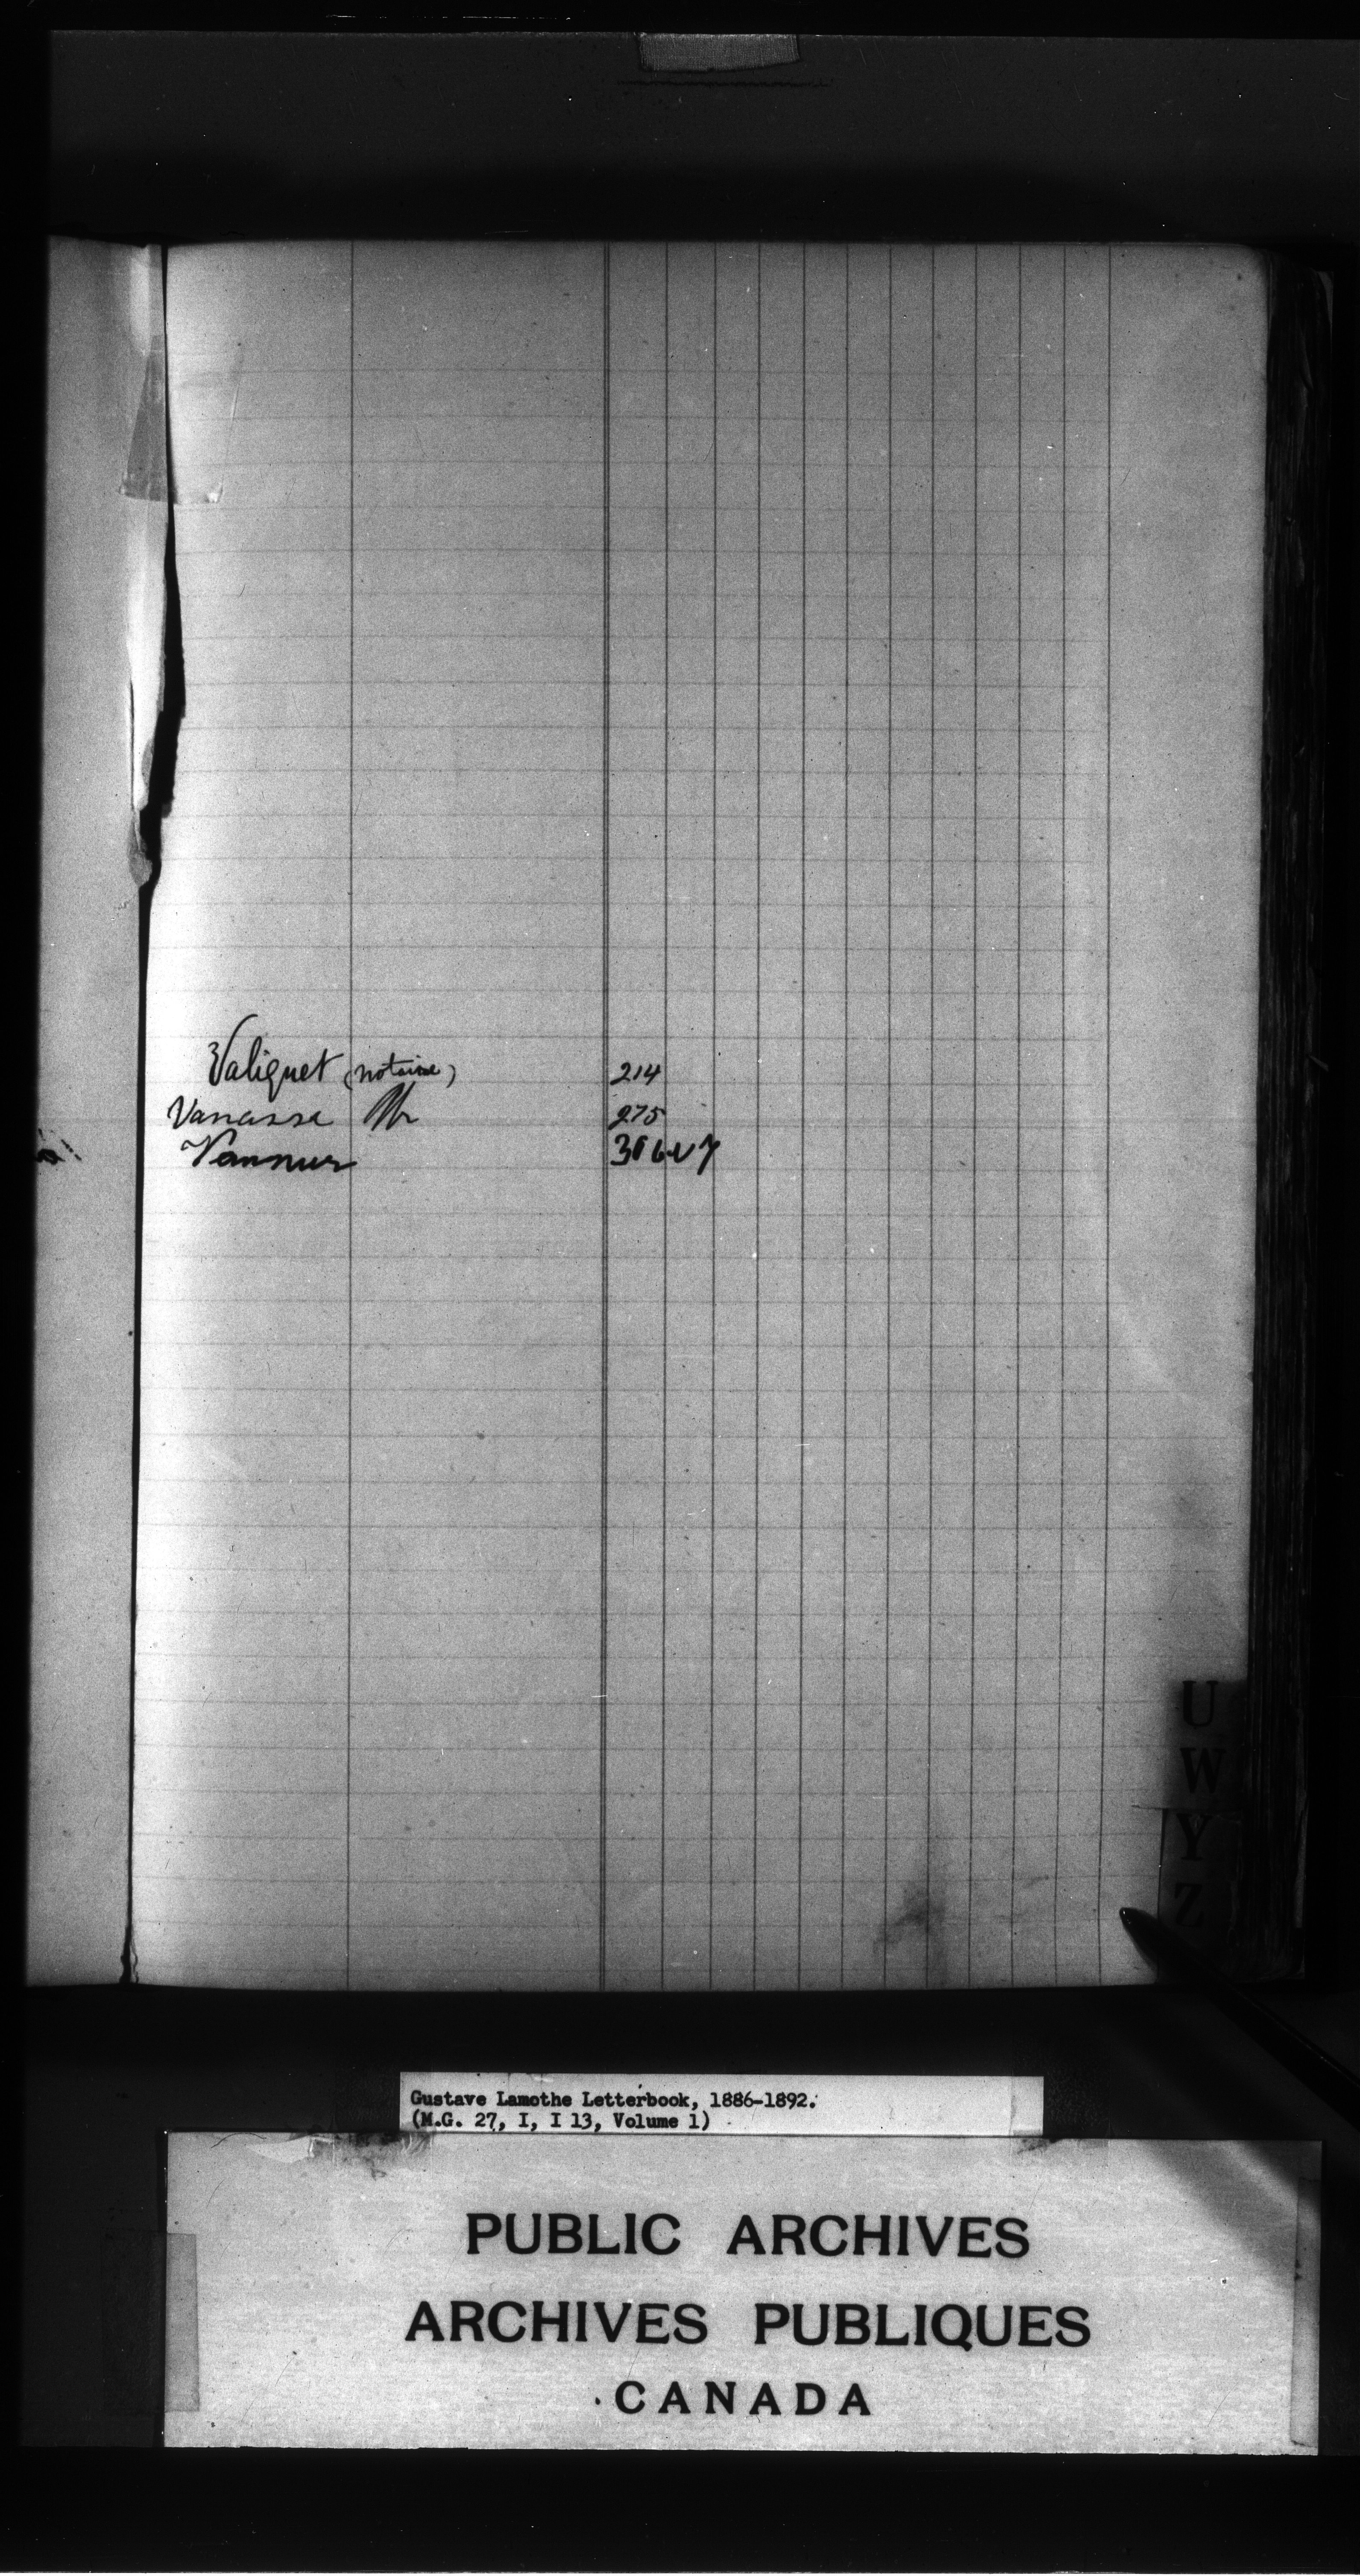 Valiquet (notaire) 214
Vanassa Mr 275
Vannur 306 v 7
U
W
Y
Z
Gustave Lamothe Letterbook, 1886-1892.
(M.G. 27, I, I 13, Volume 1)
PUBLIC ARCHIVES
ARCHIVES PUBLIQUES
CANADA